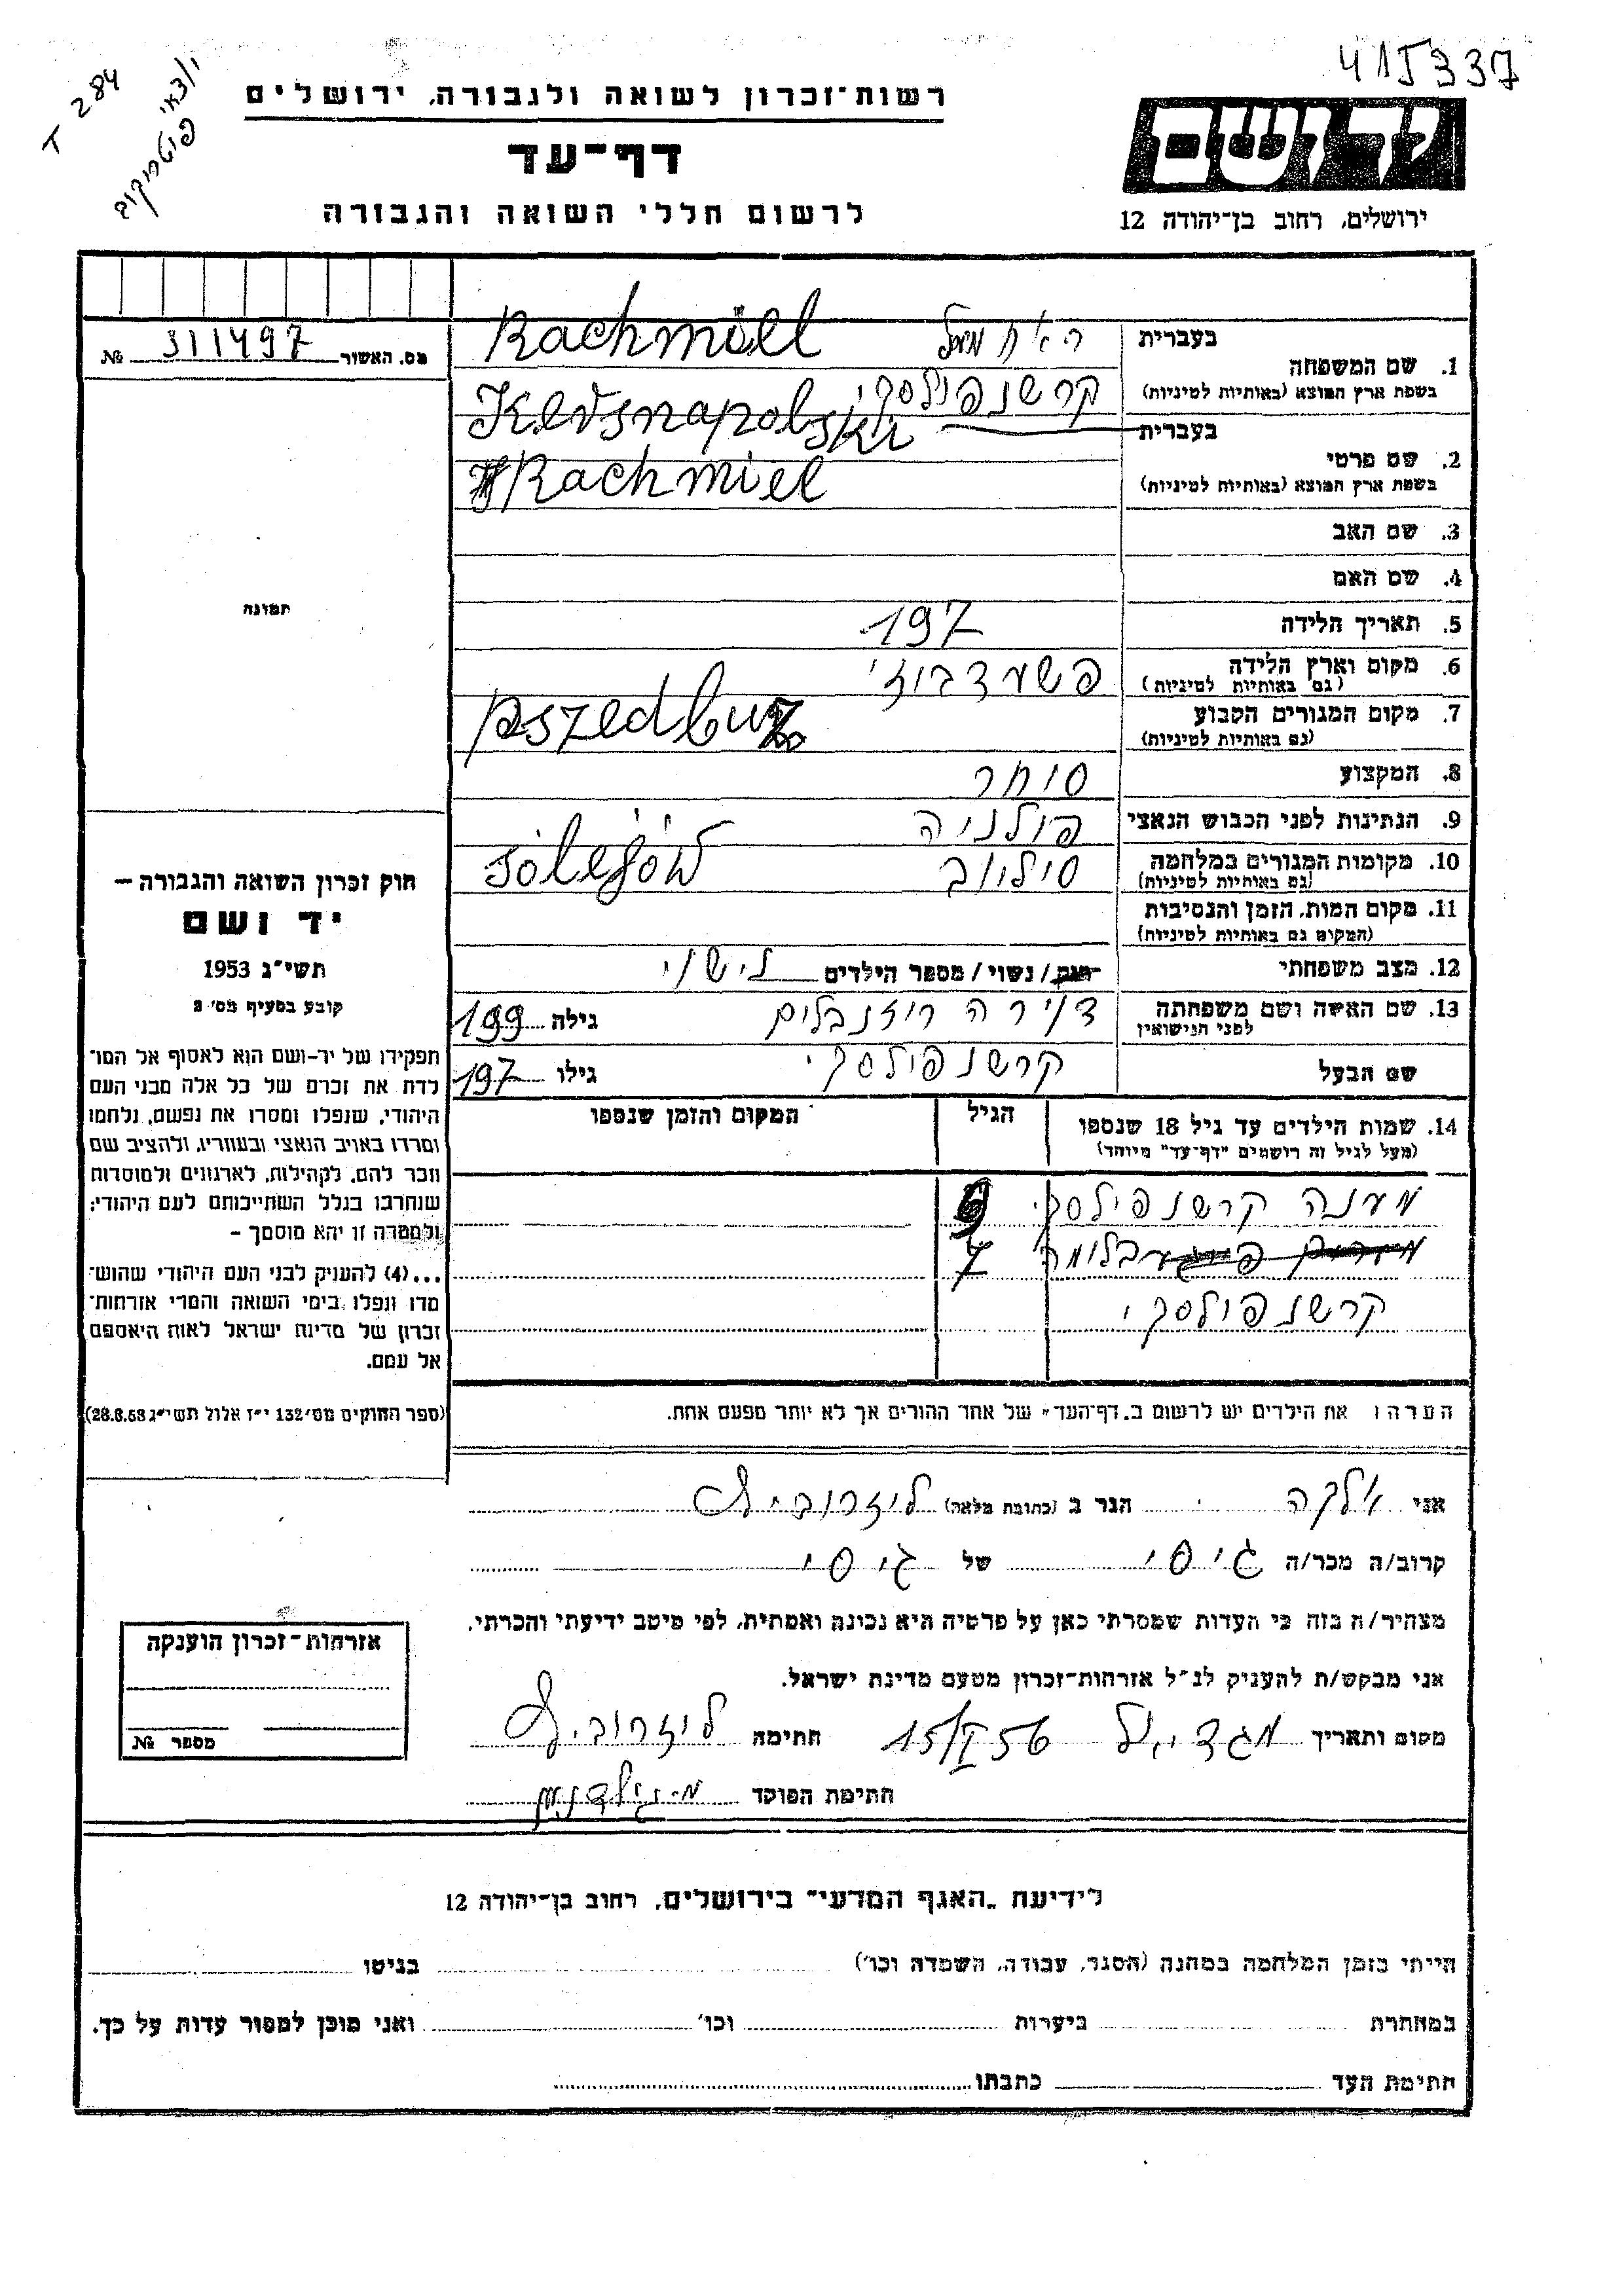 415337
T 284
רשות-זכרון לשואה ולגבורה, ירושלים
דף-עד
לרשום חללי השואה והגבורה
ידושם
ירושלים, רחוב בן-יהודה 12
מס. האשור 311497 №
בעברית
1. שם המשפחה
(בשפת ארץ המוצא (באותיות לטיניות
Rachmiel
קרשנפולסקי
Kervsnapolski
בעברית
2. שם פרטי
(בשפת ארץ המוצא (באותיות לטיניות
Rachmiel
3. שם האב
4. שם האם
תמונה
5. תאריך הלידה 197
6. מקום וארץ הלידה
(גם באותיות לטיניות)
פשעדבוזי
7. מקום המגורים הקבוע
(גם באותיות לטיניות)
pszedbuz
8. המקצוע סוחר
9. הנתינות לפני הכבוש הנאצי פולניה
10. מקומות המגורים במלחמה
(גם באותיות לטיניות)
סילוב
11. מקום המות, הזמן והנסיבות
(המקום גם באותיות לטיניות)
12. מצב משפחתי רווק / נשוי / מספר הילדים
13. שם האשה ושם משפחתה
לפני הנישואין
רוזנבלום גילה 199
שם הבעל קרשנפולסקי גילו 197
14. שמות הילדים עד גיל 18 שנספו
(מעל לגיל זה רושמים "דף-עד" מיוחד)
הגיל
המקום והזמן שנספו
מענה קרשנפולסקי 9
בלומה 7
קרשנפולסקי
הערה: את הילדים יש לרשום ב„דף-העד" של אחד ההורים אך לא יותר מפעם אחת.
חוק זכרון השואה והגבורה —
יד ושם
תשי"ג 1953
קובע בסעיף מס' 2
תפקידו של יד-ושם הוא לאסוף אל המו־
לדת את זכרם של כל אלה מבני העם
היהודי, שנפלו ומסרו את נפשם, נלחמו
ומרדו באויב הנאצי ובעוזריו, ולהציב שם
וזכר להם, לקהילות, לארגונים ולמוסדות
שנחרבו בגלל השתייכותם לעם היהודי;
ולמטרה זו יהא מוסמך –
...(4) להעניק לבני העם היהודי שהוש־
מדו ונפלו בימי השואה והמרי אזרחות־
זכרון של מדינת ישראל לאות היאספם
אל עמם.
(ספר החוקים מס' 132 י"ז אלול תשי"ג 28.8.53)
אני אלקה הגר ב (כתובת מלאה) לוזרוביץ
קרוב/ה מכר/ה גיסי של גיסי
מצהיר/ה בזה כי העדות שמסרתי כאן על פרטיה היא נכונה ואמתית, לפי מיטב ידיעתי והכרתי.
אני מבקש/ת להעניק לנ"ל אזרחות-זכרון מטעם מדינת ישראל.
מקום ותאריך מגדיאל 15/I 56 חתימה לוזרוביץ
חתימת הפוקד
אזרחות-זכרון הוענקה
מספר №
לידיעת „האגף המדעי" בירושלים, רחוב בן-יהודה 12
הייתי בזמן המלחמה במחנה (הסגר, עבודה, השמדה וכו') בגיטו
במחתרת ביערות וכו' ואני מוכן למסור עדות על כך.
חתימת העד כתבתו